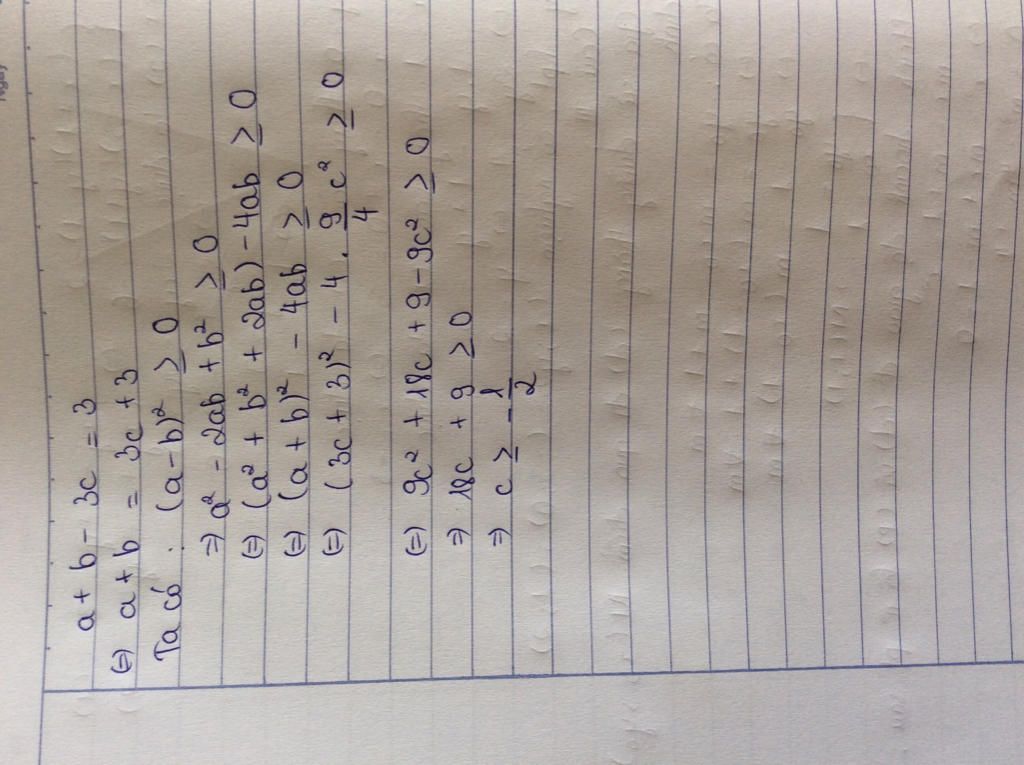 a + b - 3c = 3
(=) a + b = 3c + 3
Ta có : (a - b)² ≥ 0
=) a² - 2ab + b² ≥ 0
(=) (a² + b² + 2ab) - 4ab ≥ 0
(=) (a + b)² - 4ab ≥ 0
(=) (3c + 3)² - 4 . 9/4 c² ≥ 0
(=) 9c² + 18c + 9 - 9c² ≥ 0
=) 18c + 9 ≥ 0
=) c ≥ -1/2